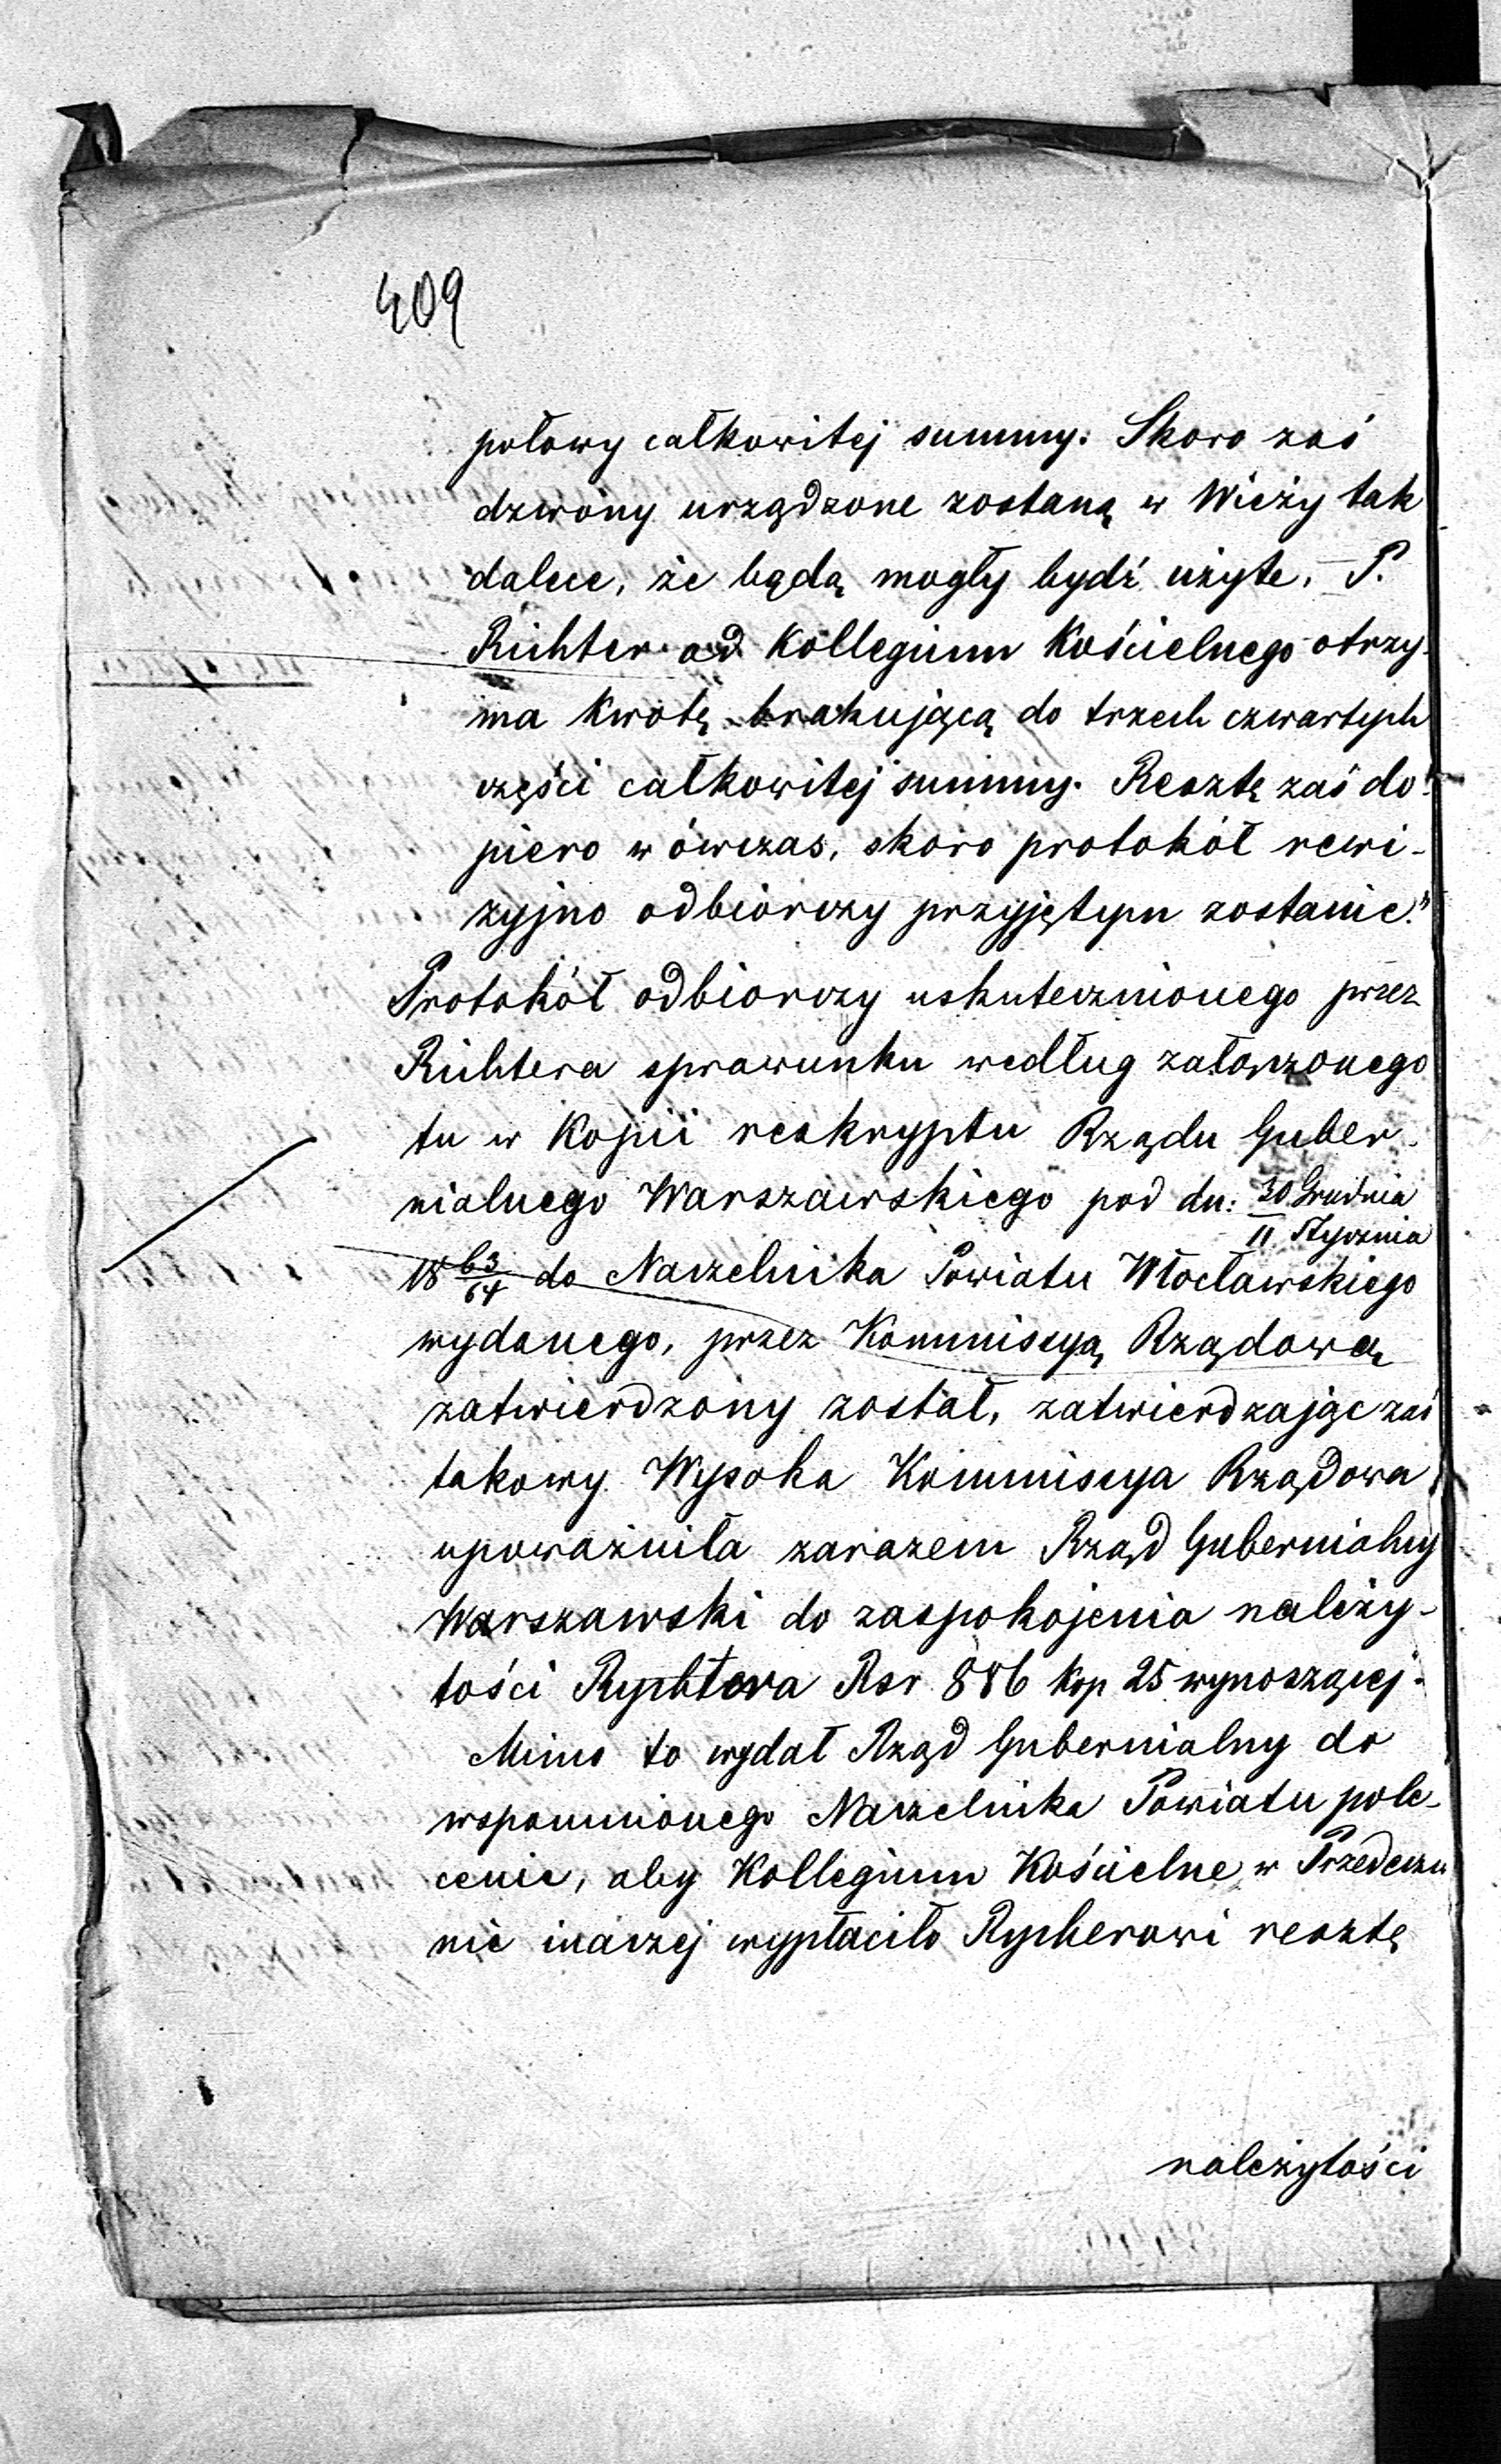 409
połowy całkowitej summy. Skoro zaś
dzwony urządzone zostaną w Wieży tak
dalece, że będą mogły bydź użyte, P.
Richter od Kollegium Kościelnego otrzy-
ma kwotę brakującą do trzech czwartych
części całkowitej summy. Resztę zaś do-
piero w ówczas, skoro protokół rewi-
zyjno odbiorczy przyjętym zostanie."
Protokół odbiorczy uskutecznionego przez
Richtera sprawunku według załączonego
tu w Kopii reskryptu Rządu Guber-
nialnego Warszawskiego pod dn: 30 Grudnia
11 Stycznia
18 63/64 do Naczelnika Powiatu Włocławskiego
wydanego, przez Kommissyą Rządową
zatwierdzony został, zatwierdzając zaś
takowy Wysoka Kommissya Rządowa
upoważniła zarazem Rząd Gubernialny
Warszawski do zaspokojenia należy-
tości Rychtera Rsr 886 kop 25 wynoszącej.
Mimo to wydał Rząd Gubernialny do
wspomnionego Naczelnika Powiatu pole-
cenie, aby Kollegium Kościelne w Przedeczu
nie inaczej wypłaciło Rychterowi resztę
należytości